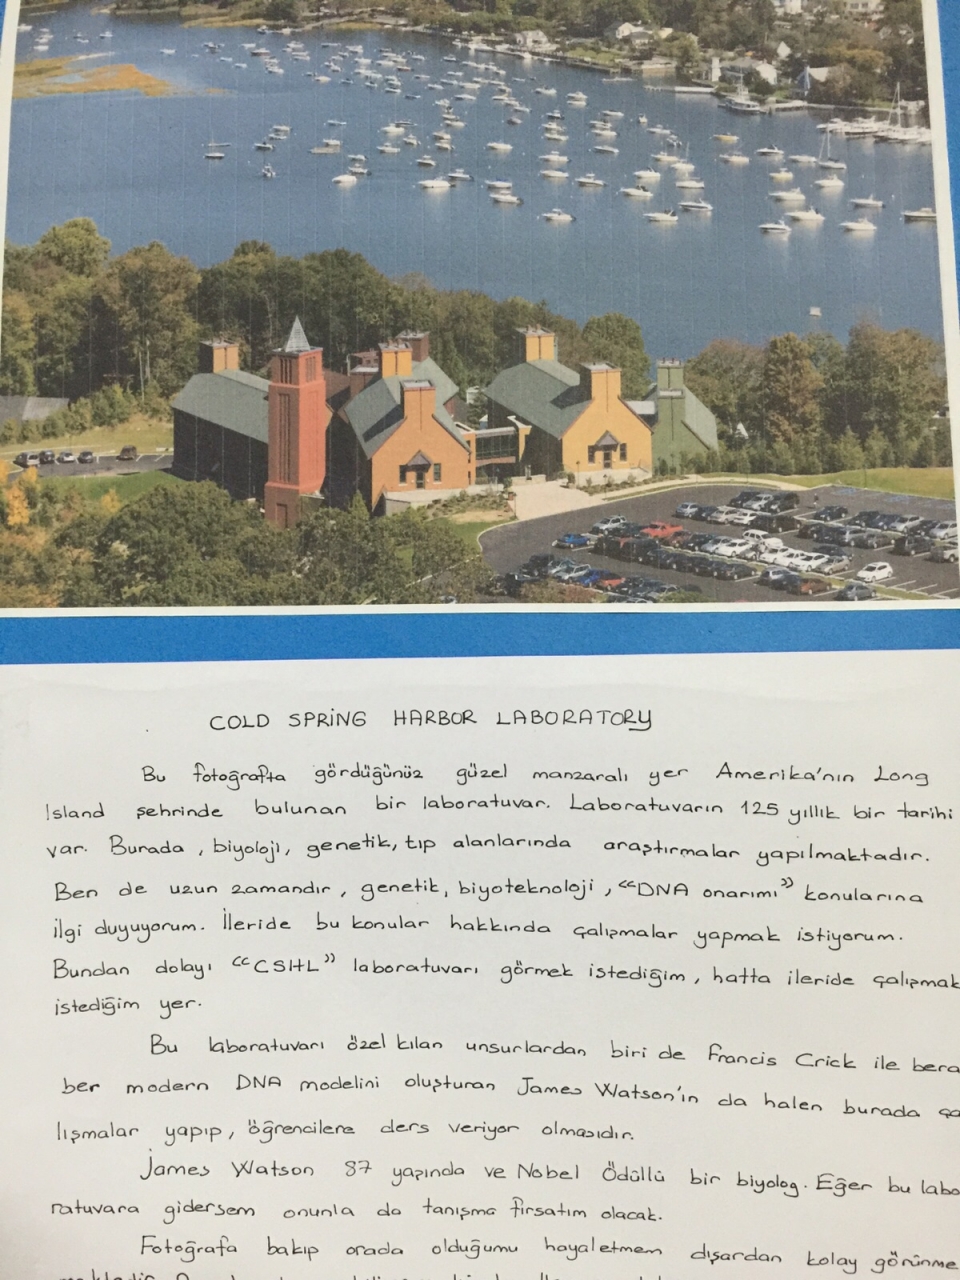 COLD SPRİNG HARBOR LABORATORY
Bu fotoğrafta gördüğünüz güzel manzaralı yer Amerika'nın Long
Island şehrinde bulunan bir laboratuvar. Laboratuvarın 125 yıllık bir tarihi
var. Burada, biyoloji, genetik, tıp alanlarında araştırmalar yapılmaktadır.
Ben de uzun zamandır, genetik, biyoteknoloji, “DNA onarımı” konularına
ilgi duyuyorum. İleride bu konular hakkında çalışmalar yapmak istiyorum.
Bundan dolayı “CSHL” laboratuvarı görmek istediğim, hatta ileride çalışmak
istediğim yer.
Bu laboratuvarı özel kılan unsurlardan biri de Francis Crick ile bera
ber modern DNA modelini oluşturan James Watson'ın da halen burada ça
lışmalar yapıp, öğrencilere ders veriyor olmasıdır.
James Watson 87 yaşında ve Nobel Ödüllü bir biyolog. Eğer bu labo
ratuvara gidersem onunla da tanışma fırsatım olacak.
Fotoğrafa bakıp orada olduğumu hayal etmem dışardan kolay görünme